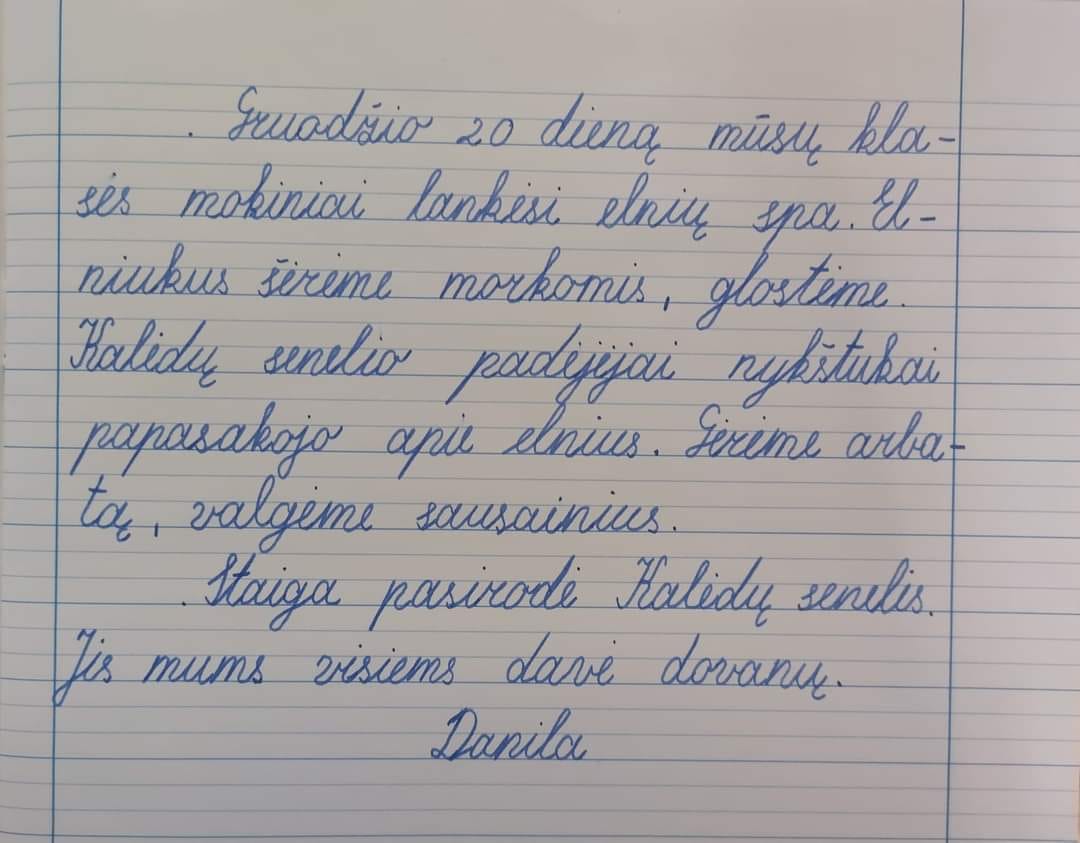 Gruodžio 20 dieną mūsų kla-
sės mokiniai lankėsi elnių spa. El-
niukus šėrėme morkomis, glostėme.
Kalėdų senelio padėjėjai nykštukai
papasakojo apie elnius. Gėrėme arba-
tą, valgėme sausainius.
Staiga pasirodė Kalėdų senelis.
Jis mums visiems davė dovanų.
Danila